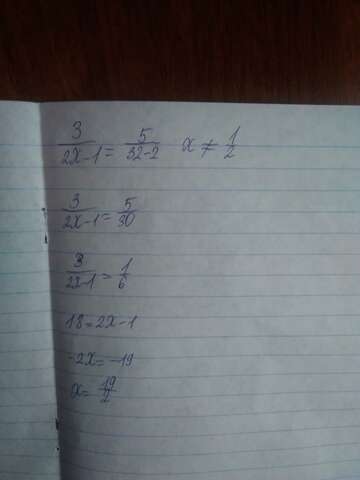 3/(2x-1) = 5/(32-2) x ≠ 1/2
3/(2x-1) = 5/30
3/(2x-1) = 1/6
18=2x-1
-2x=-19
x=19/2